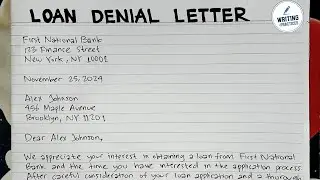 LOAN DENIAL LETTER
WRITING
PRACTICES
First National Bank
123 Finance Street
New York, NY 10001
November 25, 2024
Alex Johnson
456 Maple Avenue
Brooklyn, NY 11201
Dear Alex Johnson,
We appreciate your interest in obtaining a loan from First National
Bank and the time you have interested in the application process
After careful consideration of your loan application and a thorough